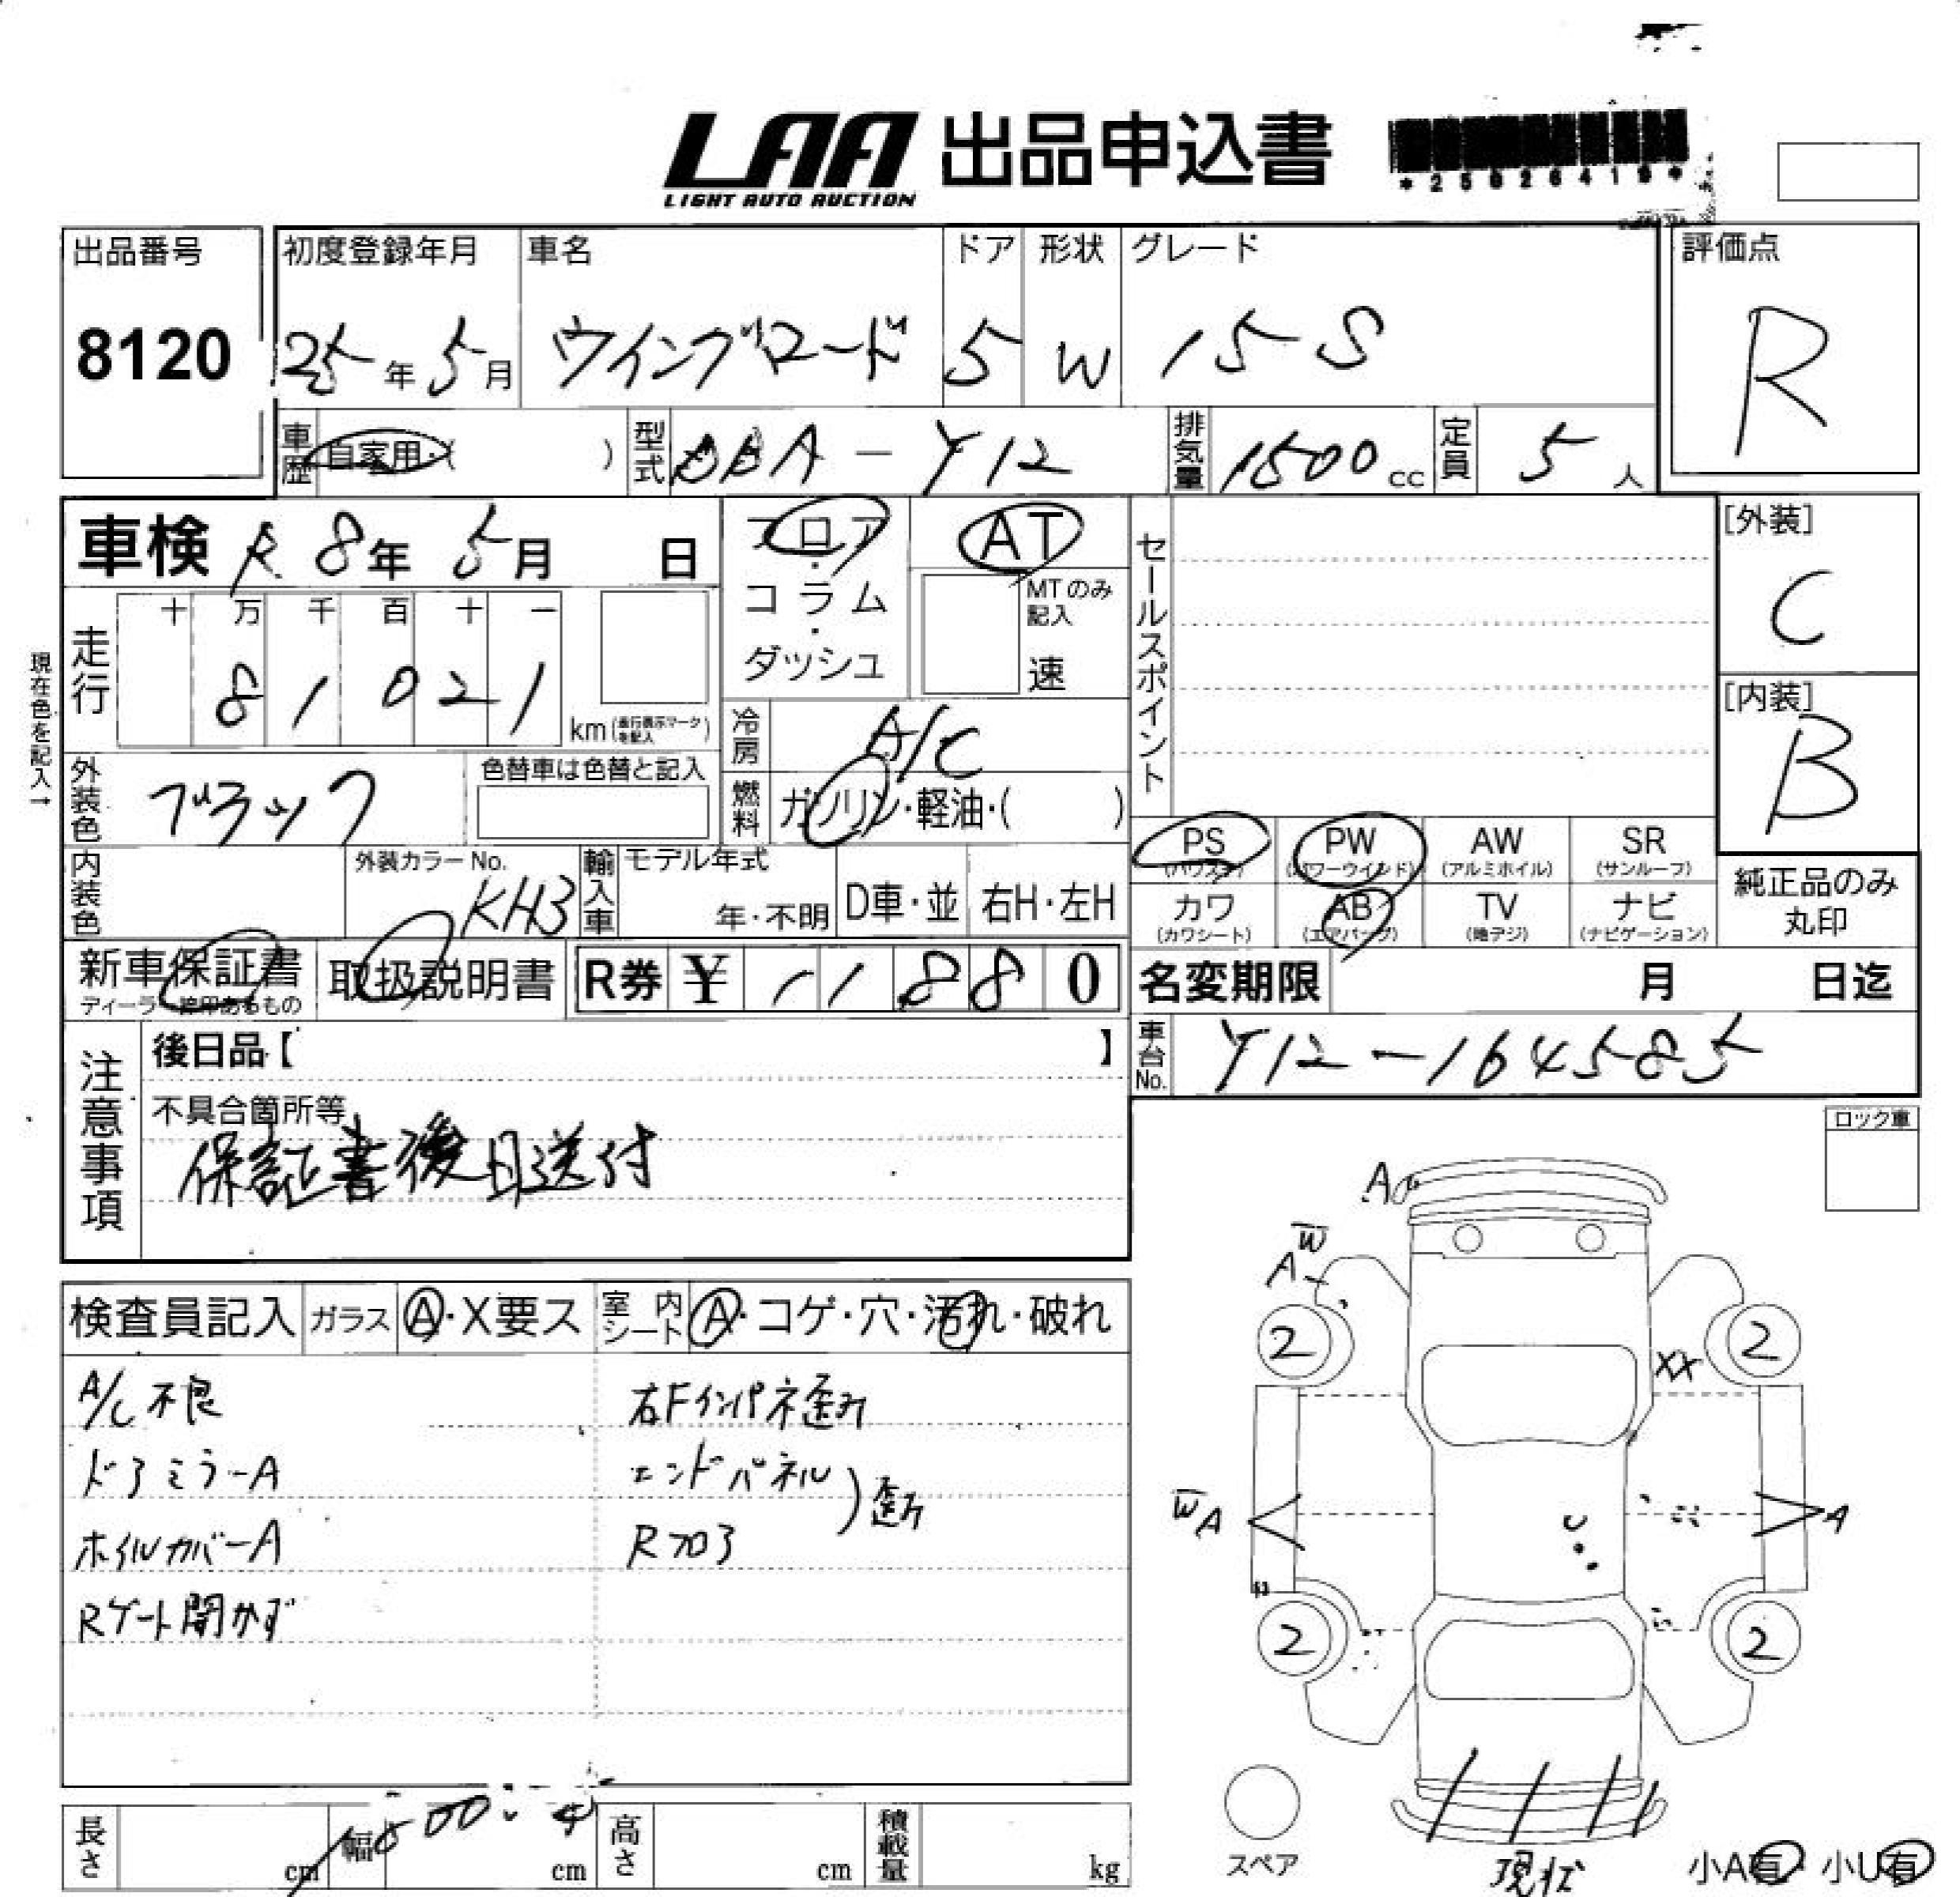 LAA 出品申込書
LIGHT AUTO AUCTION
出品番号 初度登録年月 車名 ドア 形状 グレード 評価点
8120 25年5月 ウイングロード 5 W 15S R
車歴 自家用・( ) 型式 DBA-Y12 排気量 1500cc 定員 5人
車検 R8年5月 日 フロア・コラム・ダッシュ AT
MTのみ記入 速
セールスポイント
[外装] C
現在色を記入→
走行 十 万 千 百 十 一
81021 km (走行表示マークを記入)
[内装] B
冷房 A/C
外装色 ブラック 色替車は色替と記入
燃料 ガソリン・軽油・( )
PS (パワステ) PW (パワーウインド) AW (アルミホイル) SR (サンルーフ)
内装色 外装カラーNo. KH3 輸入車 モデル年式 年・不明 D車・並 右H・左H
カワ (カワシート) AB (エアバッグ) TV (地デジ) ナビ (ナビゲーション)
純正品のみ丸印
新車保証書 取扱説明書 R券 ¥ 11880
名変期限 月 日迄
車台No. Y12-164585
注意事項
後日品【 】
不具合箇所等
保証書後日送付
ロック車
A
W
A
2 2
XX
W A A
2 2
検査員記入 ガラス A・X要ス 室内シート A・コゲ・穴・汚れ・破れ
A/C不良 右Fインパネ歪み
ドアミラーA エンドパネル
ホイルカバーA Rフロア ) 歪み
Rゲート開かず
長さ cm 幅 cm 高さ cm 積載量 kg
スペア
現状
小A有・小U有